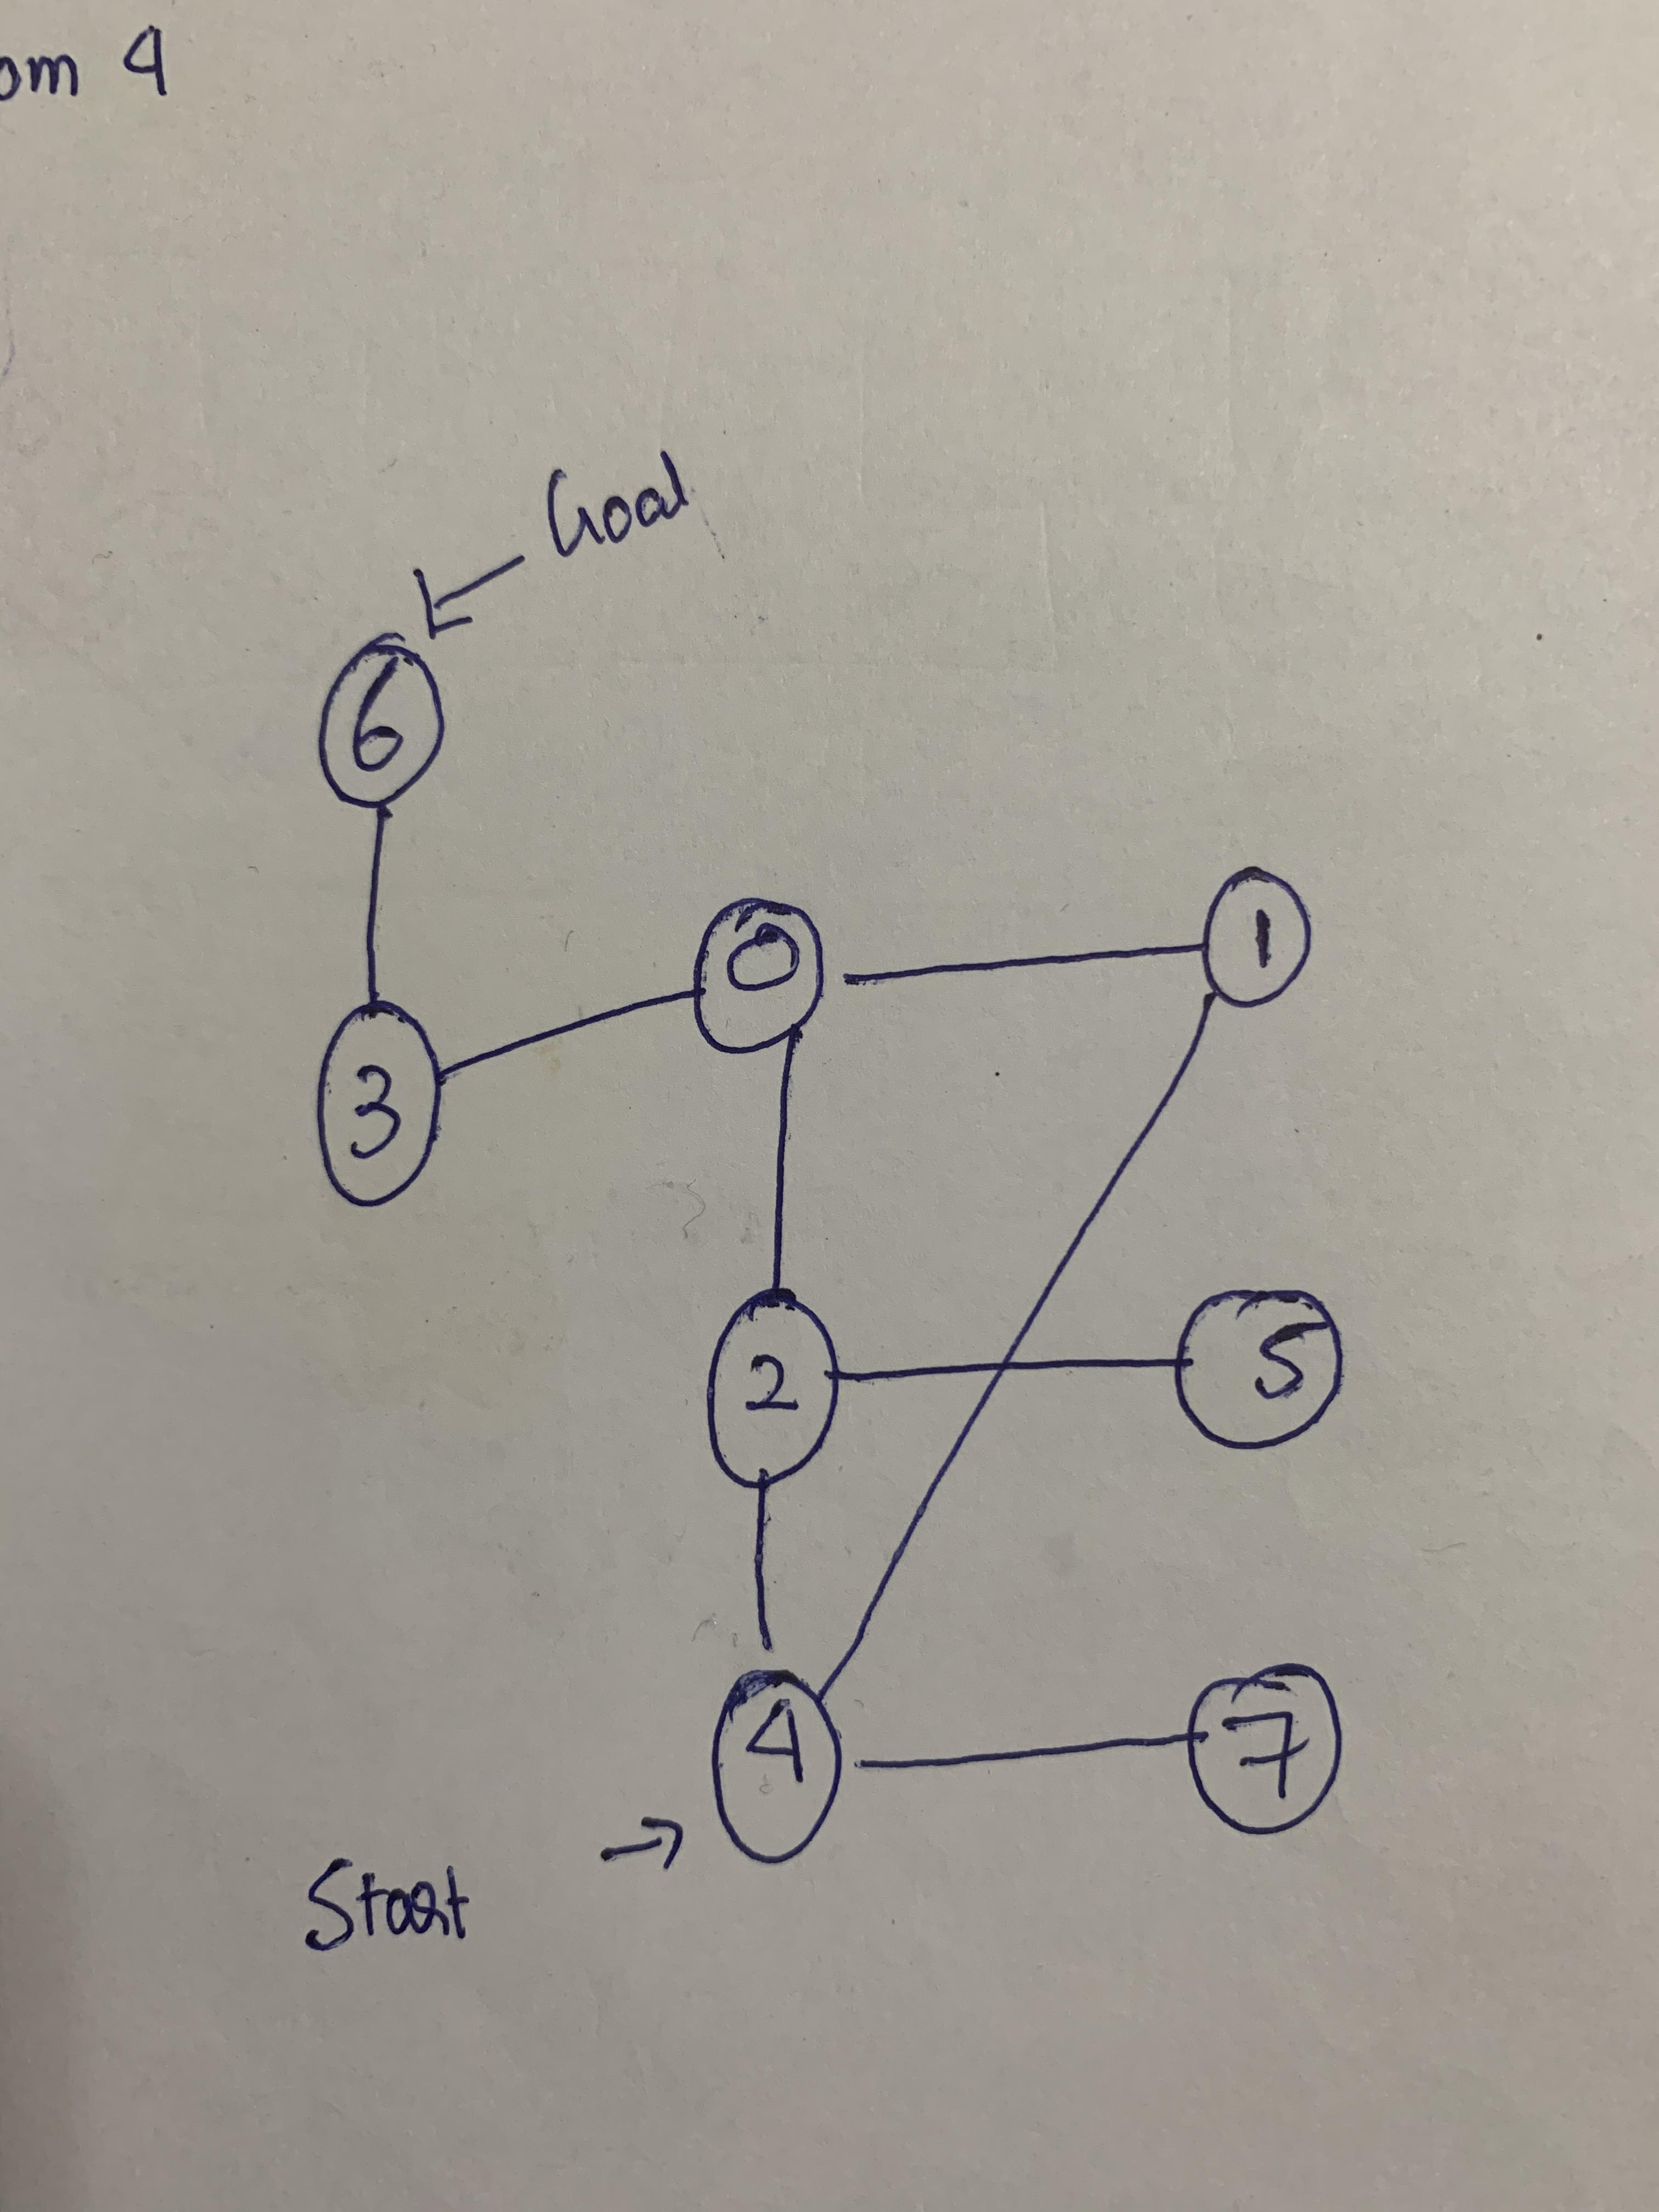 om 4
Goal
6
0 1
3
2 5
4 7
Start